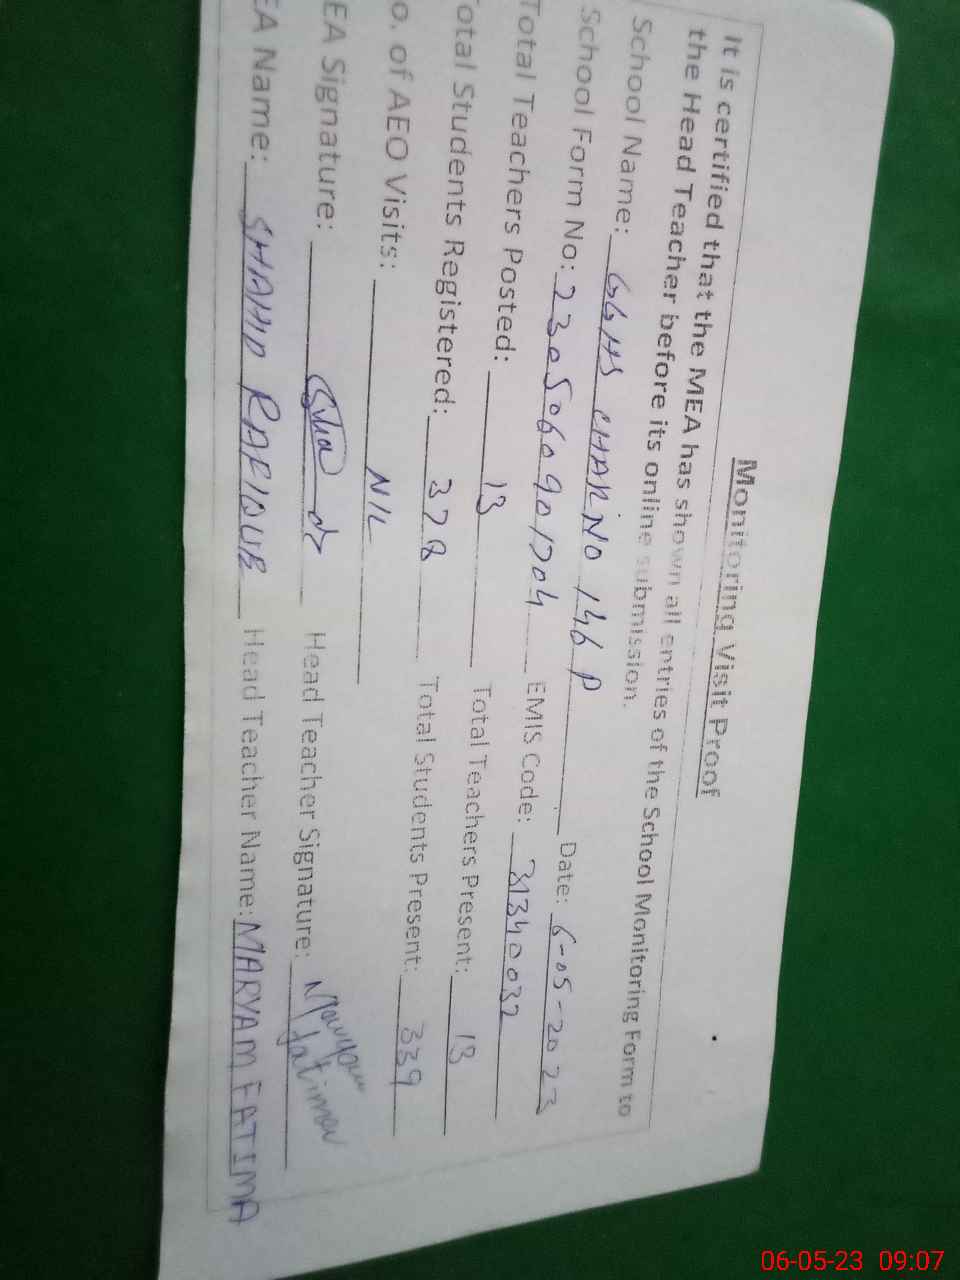 Monitoring Visit Proof
It is certified that the MEA has shown all entries of the School Monitoring Form to
the Head Teacher before its online submission.
School Name: GGHS CHAK NO 146 P Date: 6-05-2023
School Form No: 2305060901704 EMIS Code: 31340032
Total Teachers Posted: 13 Total Teachers Present: 13
otal Students Registered: 378 Total Students Present: 339
o. of AEO Visits: NIL
EA Signature: Head Teacher Signature: Maryam
fatima
EA Name: SHAHID RAFIQUE Head Teacher Name: MARYAM FATIMA
06-05-23 09:07